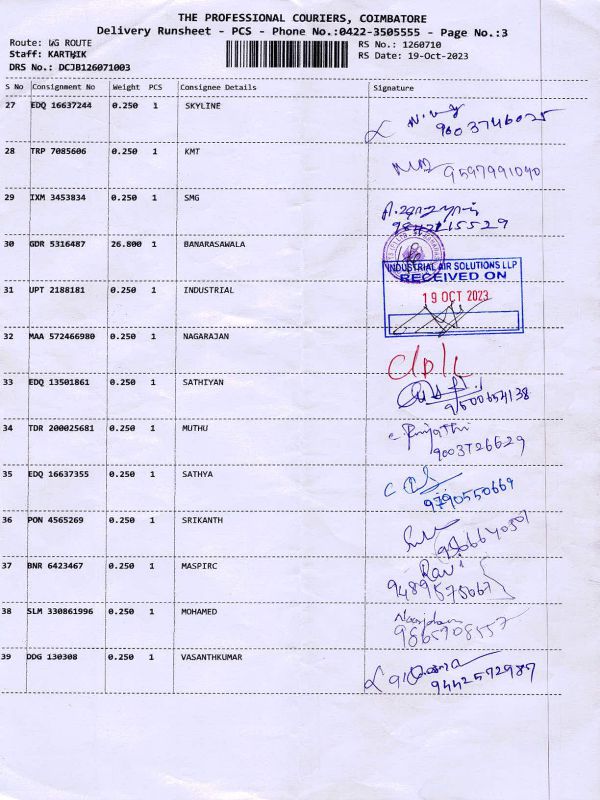 THE PROFESSIONAL COURIERS, COIMBATORE
Delivery Runsheet - PCS - Phone No.:0422-3505555 - Page No.:3
Route: WG ROUTE RS No.: 1260710
Staff: KARTHIK RS Date: 19-Oct-2023
DRS No.: DCJB126071003
S No Consignment No Weight PCS Consignee Details Signature
27 EDQ 16637244 0.250 1 SKYLINE
9003746025
28 TRP 7085606 0.250 1 KMT
9597991090
29 IXM 3453834 0.250 1 SMG
9842215529
30 GDR 5316487 26.800 1 BANARASAWALA
INDUSTRIAL AIR SOLUTIONS LLP
RECEIVED ON
31 UPT 2188181 0.250 1 INDUSTRIAL
19 OCT 2023
32 MAA 572466980 0.250 1 NAGARAJAN
33 EDQ 13501861 0.250 1 SATHIYAN
9500654138
34 TDR 200025681 0.250 1 MUTHU
9003726629
35 EDQ 16637355 0.250 1 SATHYA
9790550669
36 PON 4565269 0.250 1 SRIKANTH
37 BNR 6423467 0.250 1 MASPIRC
Ravi
9489575067
38 SLM 330861996 0.250 1 MOHAMED
9865708557
39 DDG 130308 0.250 1 VASANTHKUMAR
9442572987